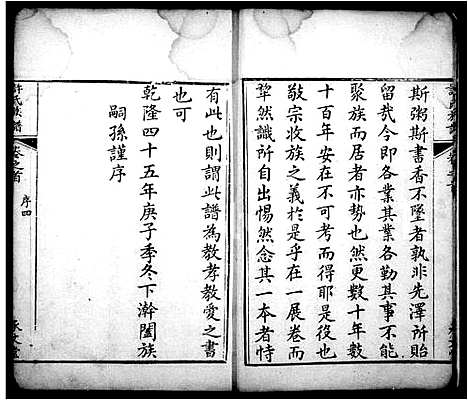 斯粥斯書香不墜者孰非先澤所貽
留哉今即各業其業各勤其事不能
聚族而居者亦勢也然更數十年數
十百年安在不可考而得耶是役也
敬宗收族之義於是乎在一展卷而
犂然識所自出惕然念其一本者恃
有此也則謂此譜為教孝教愛之書
也可
乾隆四十五年庚子季冬下澣闔族
嗣孫謹序
許氏族譜
卷之首
序四